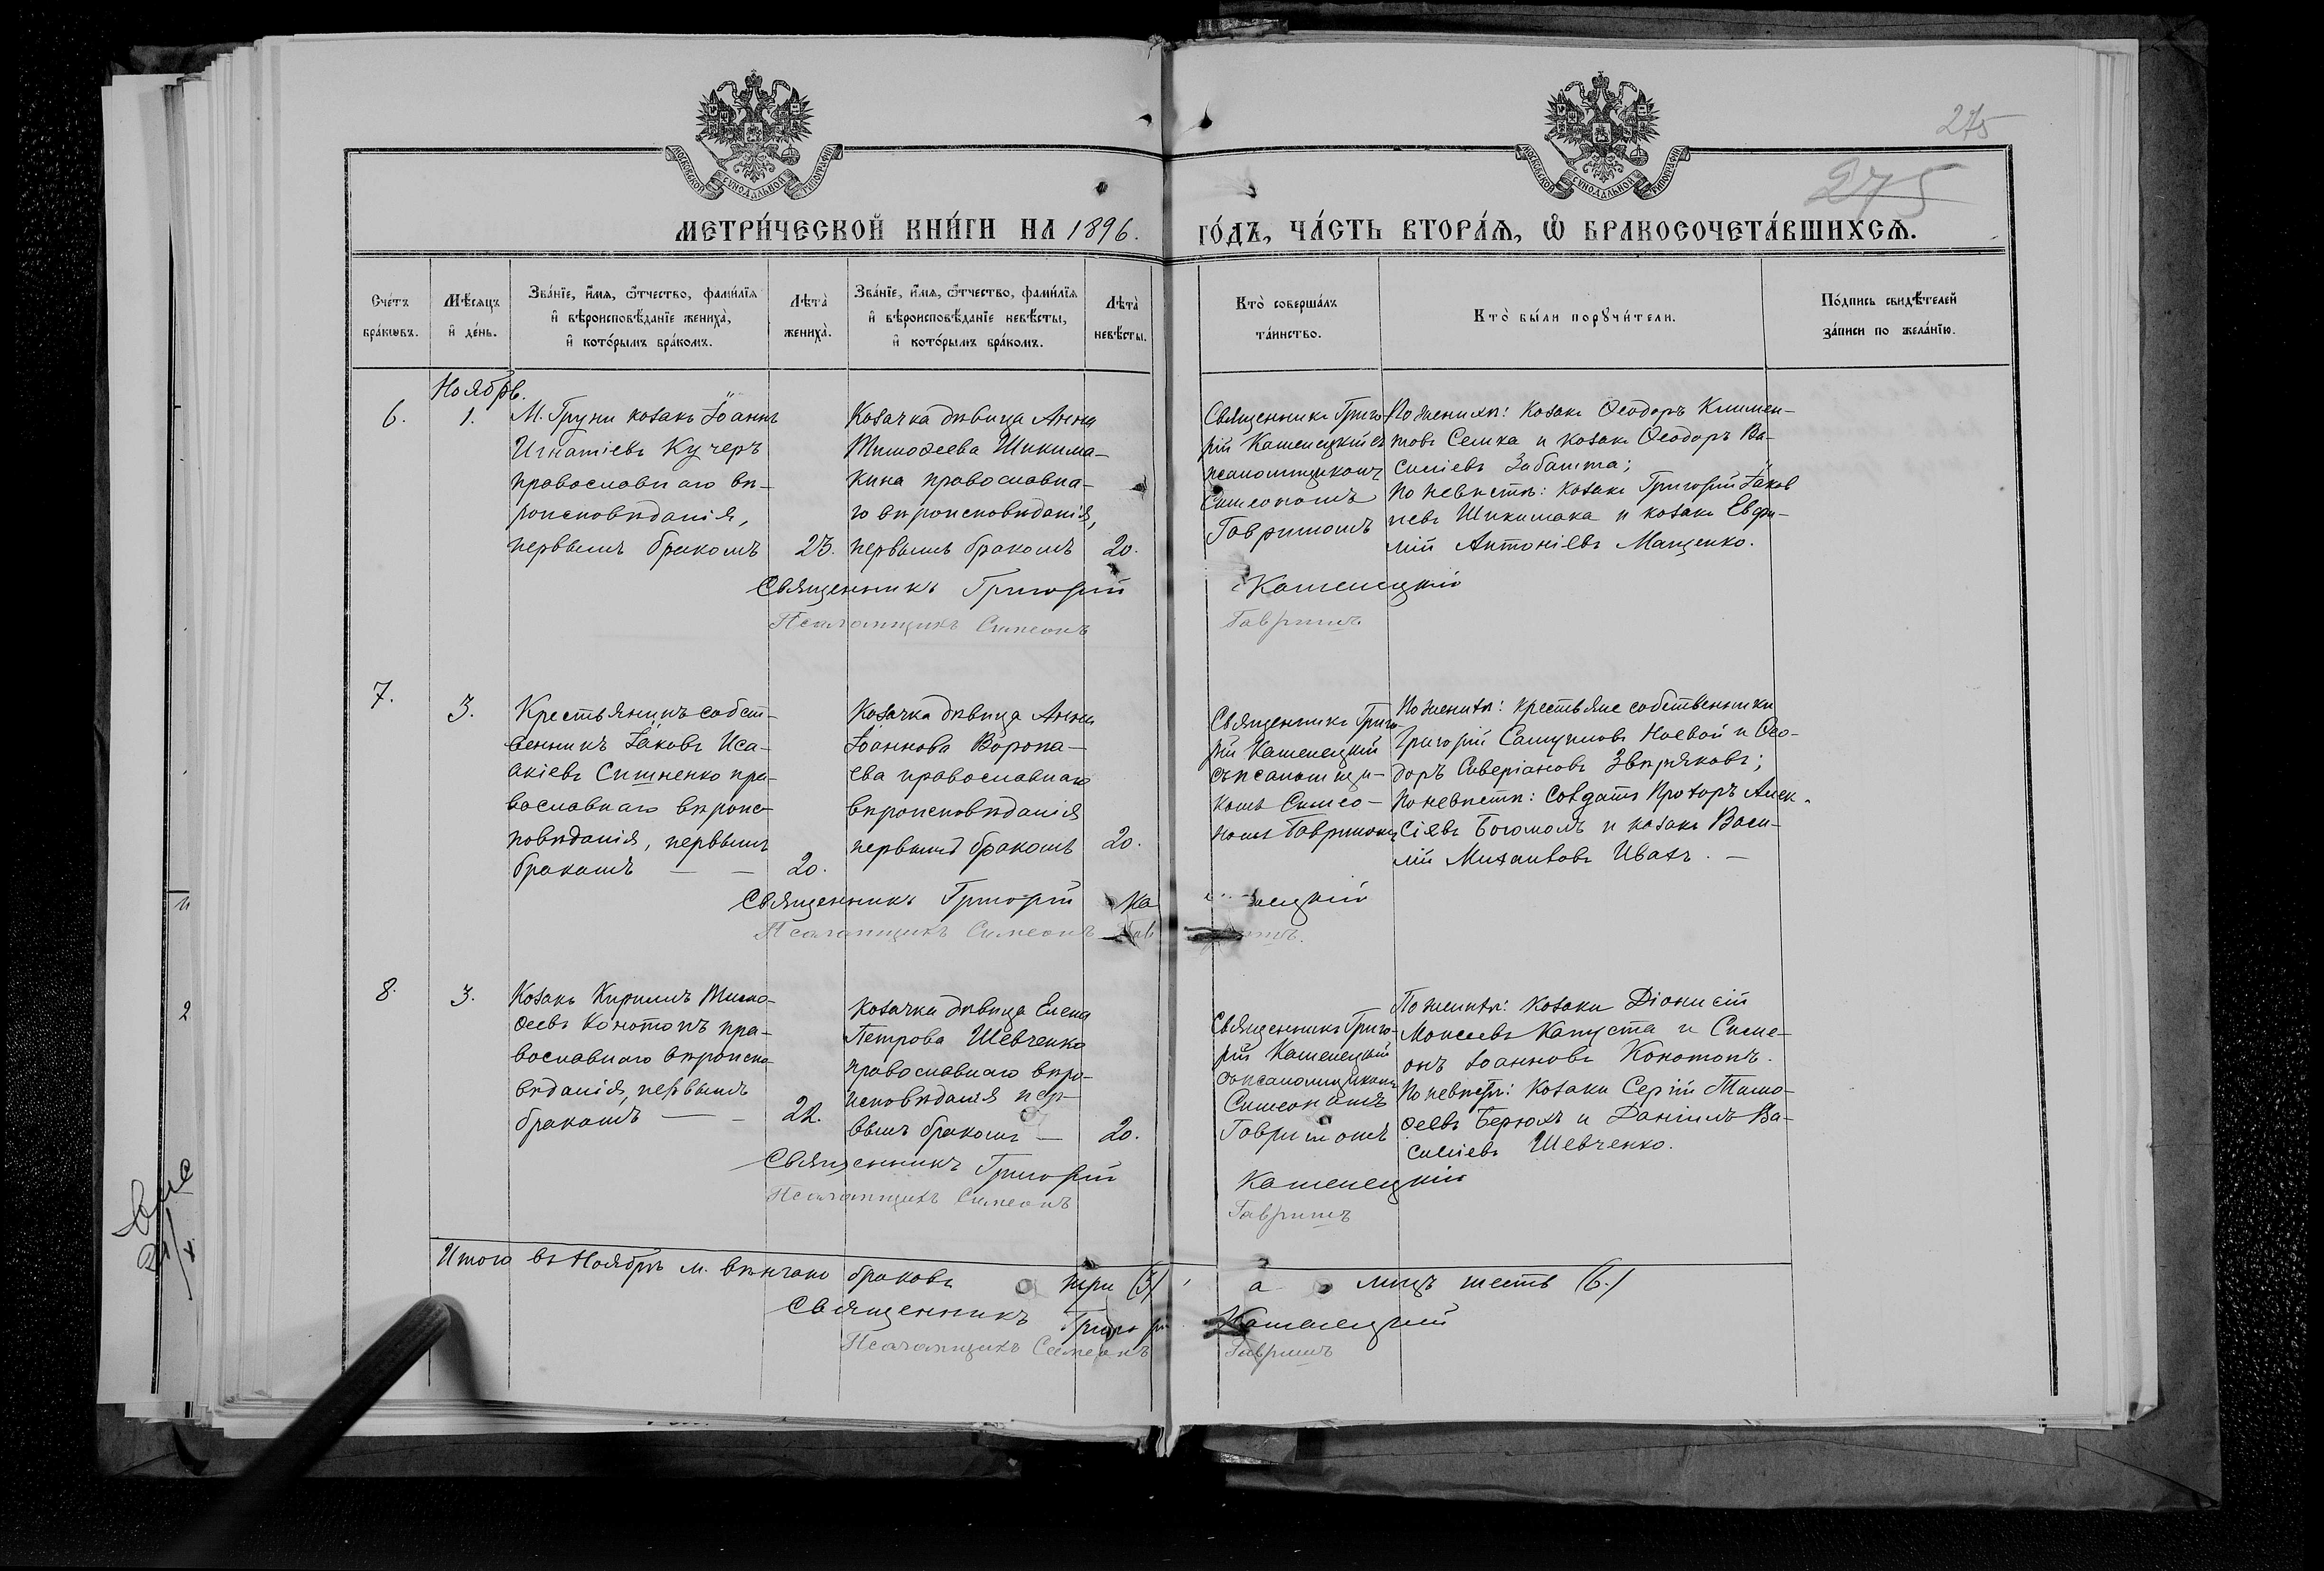 275
275
МОСКОВСКОЙ СУНОДАЛЬНОЙ ТИПОГРАФІИ
МОСКОВСКОЙ СУНОДАЛЬНОЙ ТИПОГРАФІИ
МЕТРИ́ЧЕСКОЙ КНИ́ГИ НА 1896. ГО́ДЪ, ЧА́СТЬ ВТОРА́Ѧ, Ѽ БРАКОСОЧЕТА́ВШИХСѦ.
Сче́тъ бра́кѡвъ.
Мѣ́сѧцъ и҆ де́нь.
Зва́нїе, и҆́мѧ, ѻ҆́тчество, фами́лїѧ
и҆ вѣроисповѣ́данїе жениха̀,
и҆ кото́рымъ бра́комъ.
Лѣта̀ жениха̀.
Зва́нїе, и҆́мѧ, ѻ҆́тчество, фами́лїѧ
и҆ вѣроисповѣ́данїе невѣ́сты,
и҆ кото́рымъ бра́комъ.
Лѣта̀ невѣ́сты.
Кто̀ соверша́лъ
та́инство.
Кто̀ бы́ли порꙋчи́тели.
По́дпись свидѣ́телей
за́писи по жела́нїю.
Ноябрь.
6.
1.
М. Груни козакъ Іоаннъ
Игнатіевъ Кучеръ
православнаго вѣ-
роисповѣданія,
первымъ бракомъ
23.
Козачка дѣвица Анна
Тимоѳеева Шикима-
кина православна-
го вѣроисповѣданія,
первымъ бракомъ
20.
Священникъ Григо-
рій Каменецкій съ
псаломщикомъ
Симеономъ
Гавришомъ
По женихѣ: козакъ Ѳеодоръ Климен-
товъ Селиха и козакъ Ѳеодоръ Ва-
силіевъ Забашта;
по невѣстѣ: козакъ Григорій Іаков
левъ Шикимака и козакъ Евфи-
мій Антоніевъ Мащенко.
Священникъ Григорій Каменецкій
Псаломщикъ Симеонъ Гавришъ
7.
3.
Крестьянинъ собст-
венникъ Іаковъ Иса-
акіевъ Ситненко пра-
вославнаго вѣроис-
повѣданія, первымъ
бракомъ — —
20.
Козачка дѣвица Анна
Іоаннова Воропа-
ева православнаго
вѣроисповѣданія
первымъ бракомъ
20.
Священникъ Григо
рій Каменецкій
съ псаломщи-
комъ Симео-
номъ Гавришомъ
По женихѣ: крестьяне собственники
Григорій Самуиловъ Ноевой и Ѳео-
доръ Северіановъ Звѣряковъ;
По невѣстѣ: Солдатъ Прохоръ Алек-
сіевъ Богомолъ и козакъ Васи-
лій Михаиловъ Ивахъ. —
Священникъ Григорій Ка нецкій
Псаломщикъ Симеонъ Гав шъ.
8.
3.
Козакъ Кириллъ Тимо-
ѳеевъ Конотопъ пра-
вославнаго вѣроиспо-
вѣданія, первымъ
бракомъ — —
22.
Козачка дѣвица Елена
Петрова Шевченко
православнаго вѣро-
исповѣданія пер-
вымъ бракомъ —
20.
Священникъ Григо-
рій Каменецкій
съ псаломщикомъ
Симеономъ
Гавришомъ
По женихѣ: козаки Діонисій
Моисеевъ Капуста и Симе-
онъ Іоанновъ Конотопъ.
По невѣстѣ: козаки Сергій Тимо-
ѳеевъ Берюхъ и Даніилъ Ва-
силіевъ Шевченко.
Священникъ Григорій Каменецкій
Псаломщикъ Симеонъ Гавришъ
Итого въ Ноябрѣ м. вѣнчано браковъ три (3) а лицъ шесть (6.)
Священникъ Григорій Каменецкій
Псаломщикъ Симеонъ Гавришъ
2